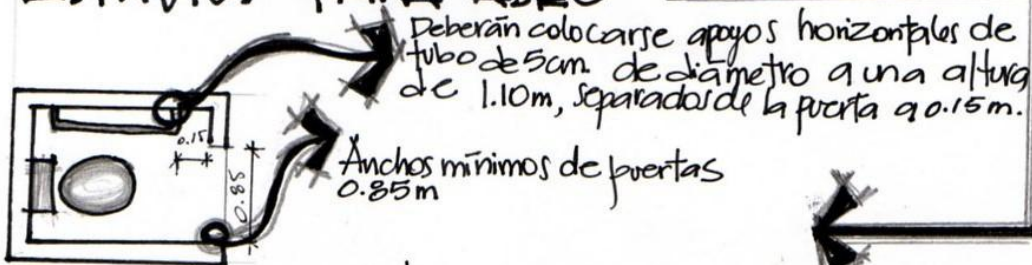 Deberán colocarse apoyos horizontales de
tubo de 5cm. de diámetro a una altura
de 1.10m, separados de la puerta a 0.15m.
0.15
0.85
Anchos mínimos de puertas
0.85m